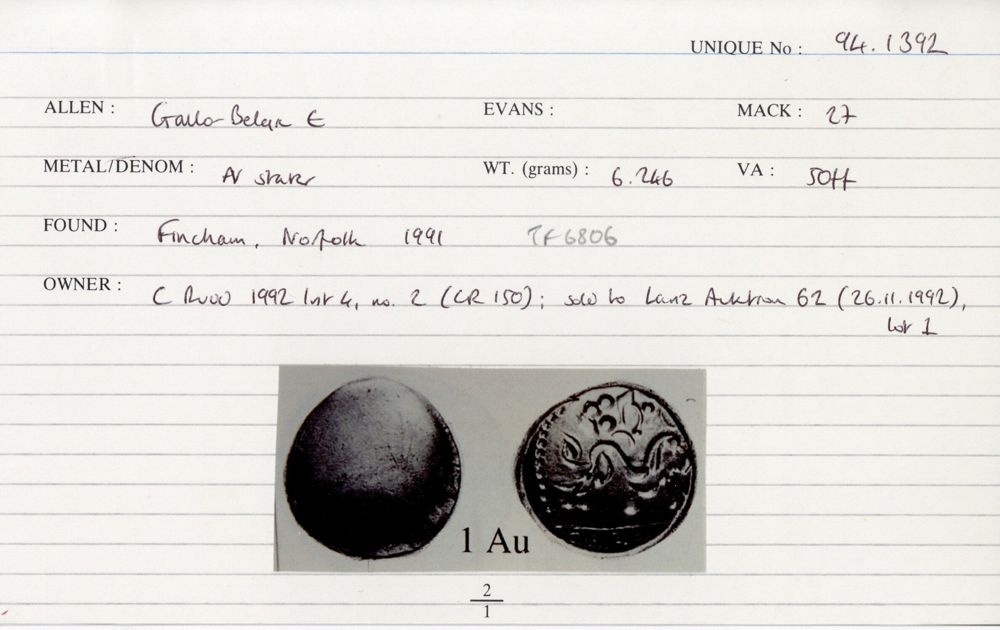 UNIQUE No : 94.1392
ALLEN : Gallo-Belgic E EVANS : MACK : 27
METAL/DENOM : AV stater WT. (grams) : 6.246 VA : 50ff
FOUND : Fincham, Norfolk 1991 TF6806
OWNER : C Rudd 1992 list 4, no. 2 (CR 150); sold to Lanz Auktion 62 (26.11.1992),
lot 1
1 Au
2
1